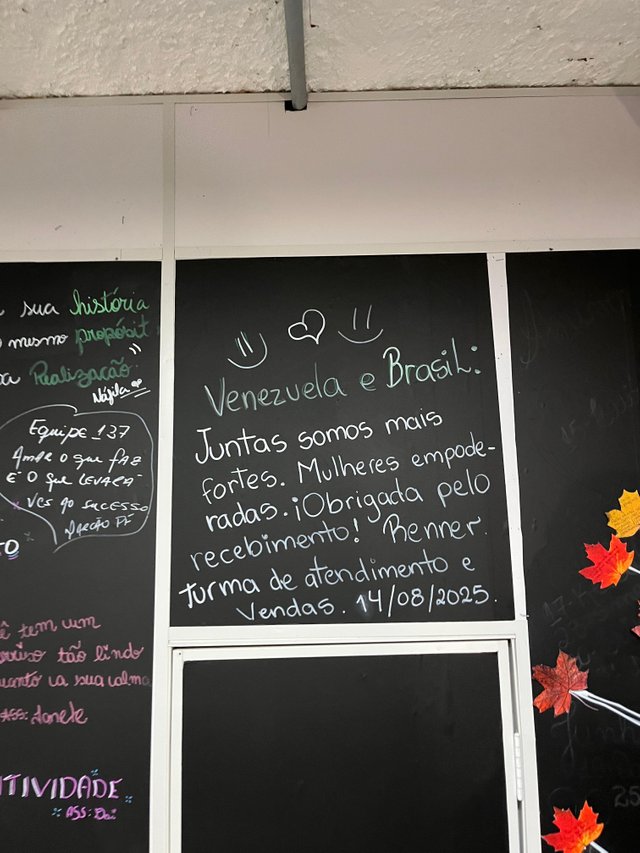 sua história
mesmo propósit
Realização
Nájila
Equipe 137
Amar o que faz
É o que levará
vcs ao sucesso
tem um
tão lindo
sua calma
ASS: Janete
TIVIDADE
ASS: Dai
Venezuela e Brasil:
Juntas somos mais
fortes. Mulheres empode-
radas. ¡Obrigada pelo
recebimento! Renner.
turma de atendimento e
Vendas. 14/08/2025.